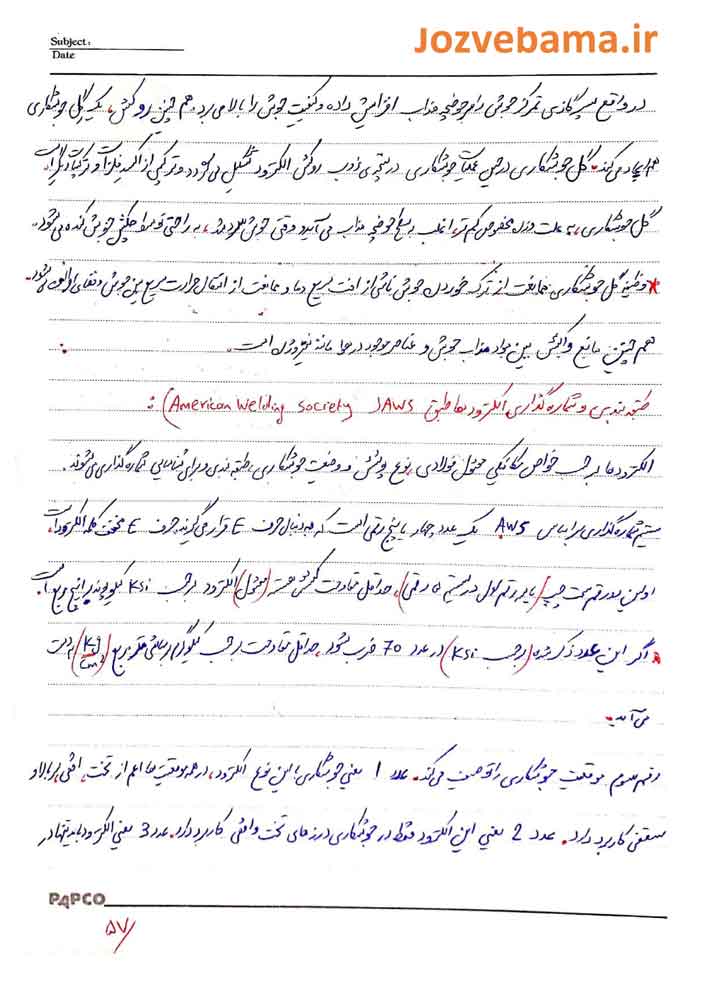 Subject:
Date
Jozvebama.ir
در واقع سپر گازی تمرکز جوش را در حوضچه مذاب افزایش داده و کیفیت جوش را بالا می برد. هم چنین روکش، یک گل جوشکاری
هم ایجاد می کند. گل جوشکاری در حین عملیات جوشکاری در نتیجه ی ذوب روکش الکترود تشکیل می گردد و ترکیبی از اکسید فلزات و ترکیبات دیگر است.
گل جوشکاری، به علت وزن مخصوص کم تر، اغلب به سطح حوضچه مذاب می آید و وقتی جوش سرد شد، به راحتی توسط چکش جوش کنده می شود.
* وظیفه گل جوشکاری، ممانعت از ترک خوردن جوش ناشی از افت سریع دما و ممانعت از انتقال حرارت سریع بین جوش و فضای اطراف می شود.
هم چنین مانع واکنش بین مواد مذاب جوش و عناصر موجود در هوا مانند نیتروژن است.
طبقه بندی و شماره گذاری الکترودها طبق AWS (American Welding Society) :
الکترودها بر حسب خواص مکانیکی مفتول فولادی، نوع پوشش و وضعیت جوشکاری، طبقه بندی و برای شناسایی شماره گذاری می شوند.
سیستم شماره گذاری بر اساس AWS یک عدد چهار یا پنج رقمی است که به دنبال حرف E قرار می گیرند. حرف E مخفف کلمه الکترود است.
اولین دو رقم سمت چپ (یا سه رقم اول در سیستم ۵ رقمی)، حداقل مقاومت کششی مغز (مفتول) الکترود بر حسب Ksi کیلو پوند بر اینچ مربع است.
* اگر این عدد ذکر شده (بر حسب Ksi) در عدد 70 ضرب شود، حداقل مقاومت بر حسب کیلوگرم بر سانتی متر مربع (Kg/cm²) به دست
می آید.
رقم سوم موقعیت جوشکاری را توصیف می کند. عدد 1 یعنی جوشکاری با این نوع الکترود، در همه موقعیت ها اعم از تخت، افقی، سر بالا و
سقفی کاربرد دارد. عدد 2 یعنی این الکترود فقط در جوشکاری درزهای تخت و افقی کاربرد دارد. عدد 3 یعنی الکترود باید تنها در
PAPCO
۵۷/